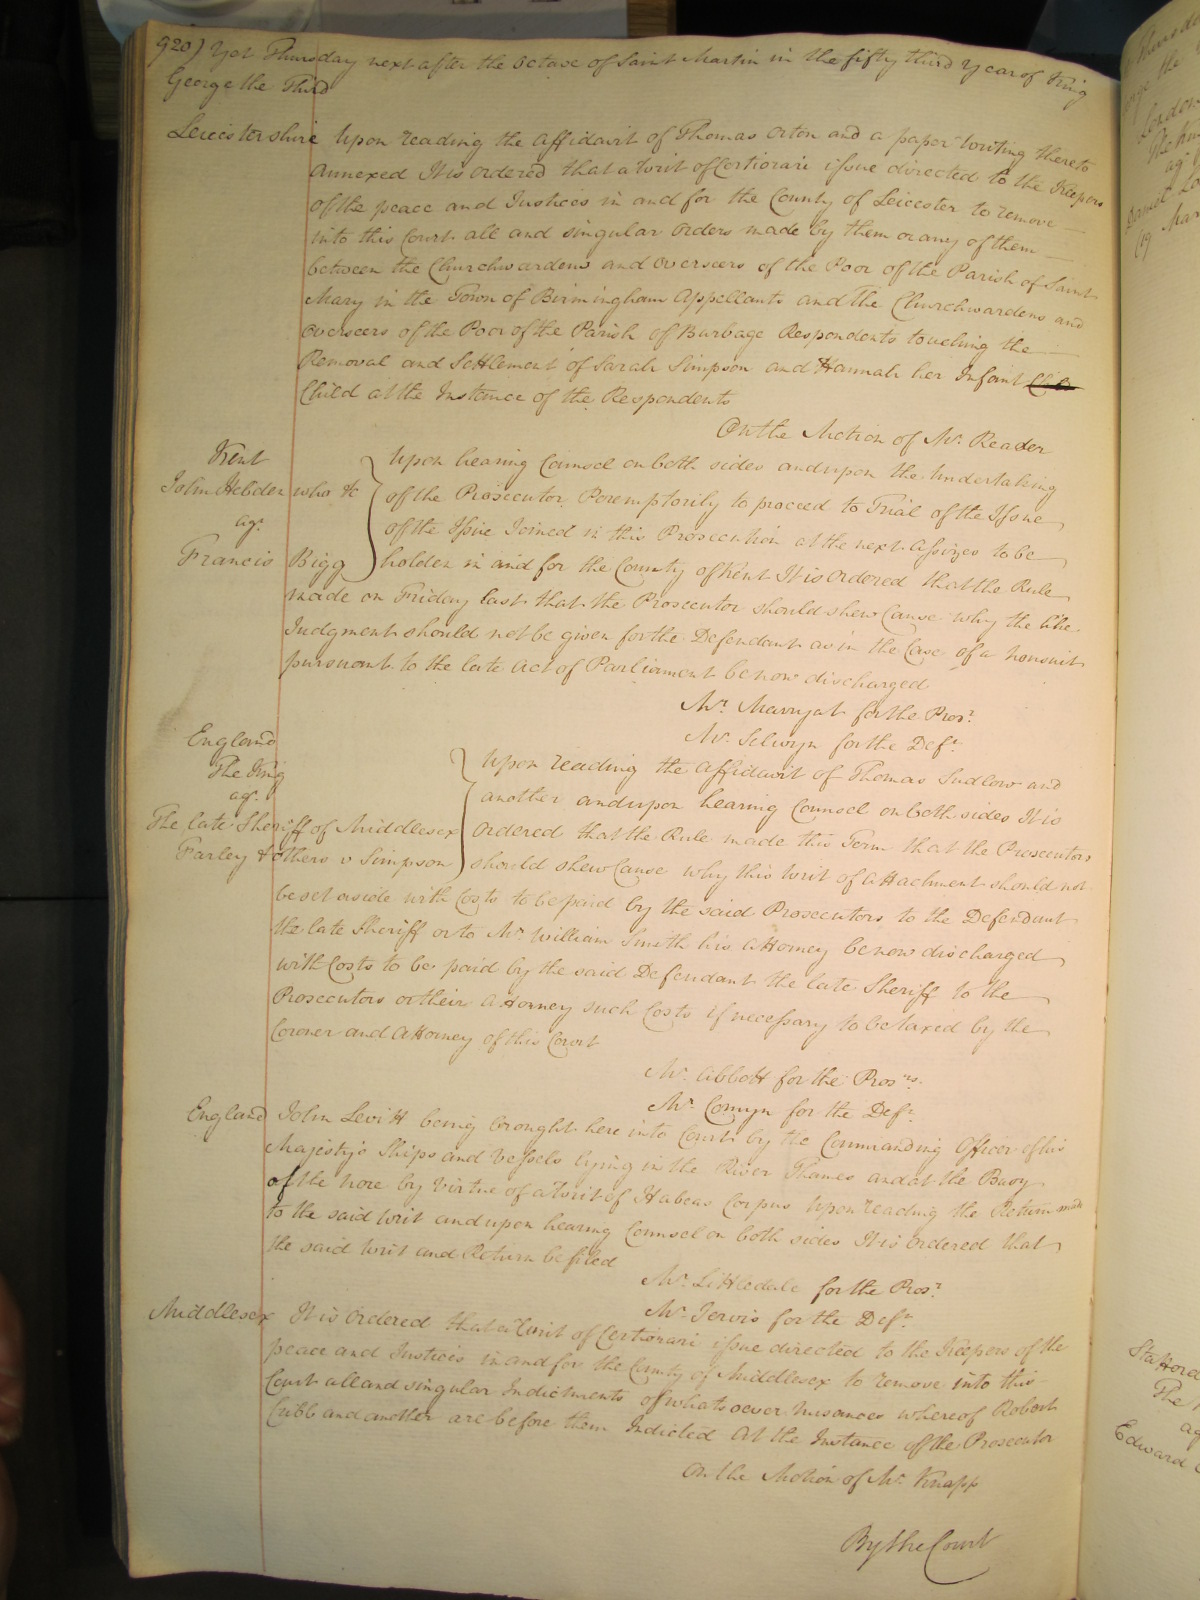 920) Yet Thursday next after the Octave of Saint Martin in the fifty third Year of King
George the Third
Leicestershire Upon reading the Affidavit of Thomas Orton and a paper Writing thereto
Annexed It is ordered that a writ of Certiorari issue directed to the Keepers
of the peace and Justices in and for the County of Leicester to remove
into this Court all and singular orders made by them or any of them
between the Churchwardens and Overseers of the Poor of the Parish of Saint
Mary in the Town of Birmingham Appellants and The Churchwardens and
Overseers of the Poor of the Parish of Burbage Respondents touching the
Removal and Settlement of Sarah Simpson and Hannah her Infant
Child at the Instance of the Respondents
On the Motion of Mr. Reader
Kent
John Hebden who &c
agt.
Francis Bigg
Upon hearing Counsel on both sides and upon the Undertaking
of the Prosecutor Peremptorily to proceed to Trial of the Issue
of the Issue Joined in this Prosecution at the next Assizes to be
holden in and for the County of Kent It is ordered that the Rule
made on Friday last that the Prosecutor should shew Cause why the like
Judgment should not be given for the Defendant as in the Case of a nonsuit
pursuant to the late Act of Parliament be now discharged
Mr. Marryat for the Prosr.
Mr. Selwyn for the Deft.
England
The King
agt.
The late Sheriff of Middlesex
Farley & others v Simpson
Upon reading the Affidavit of Thomas Sudlow and
another and upon hearing Counsel on both sides It is
Ordered that the Rule made this Term that the Prosecutors
should shew Cause why this Writ of Attachment should not
be set aside with Costs to be paid by the said Prosecutors to the Defendant
the late Sheriff or to Mr. William Smith his Attorney be now discharged
with Costs to be paid by the said Defendant the late Sheriff to the
Prosecutors or their Attorney such Costs if necessary to be taxed by the
Coroner and Attorney of this Court
Mr. Abbott for the Prosrs.
Mr. Comyn for the Deft.
England John Levitt being brought here into Court by the Commanding Officer of his
Majesty's Ships and Vessels lying in the River Thames and at the Buoy
of the Nore by virtue of a Writ of Habeas Corpus Upon reading the Return made
to the said Writ and upon hearing Counsel on both sides It is Ordered that
the said Writ and Return be filed
Mr. Littledale for the Prosr.
Mr. Jervis for the Deft.
Middlesex It is Ordered that a Writ of Certiorari issue directed to the Keepers of the
peace and Justices in and for the County of Middlesex to remove into this
Court all and singular Indictments of whatsoever Nuisances whereof Robert
Cribb and another are before them Indicted At the Instance of the Prosecutor
On the Motion of Mr. Knapp
By the Court